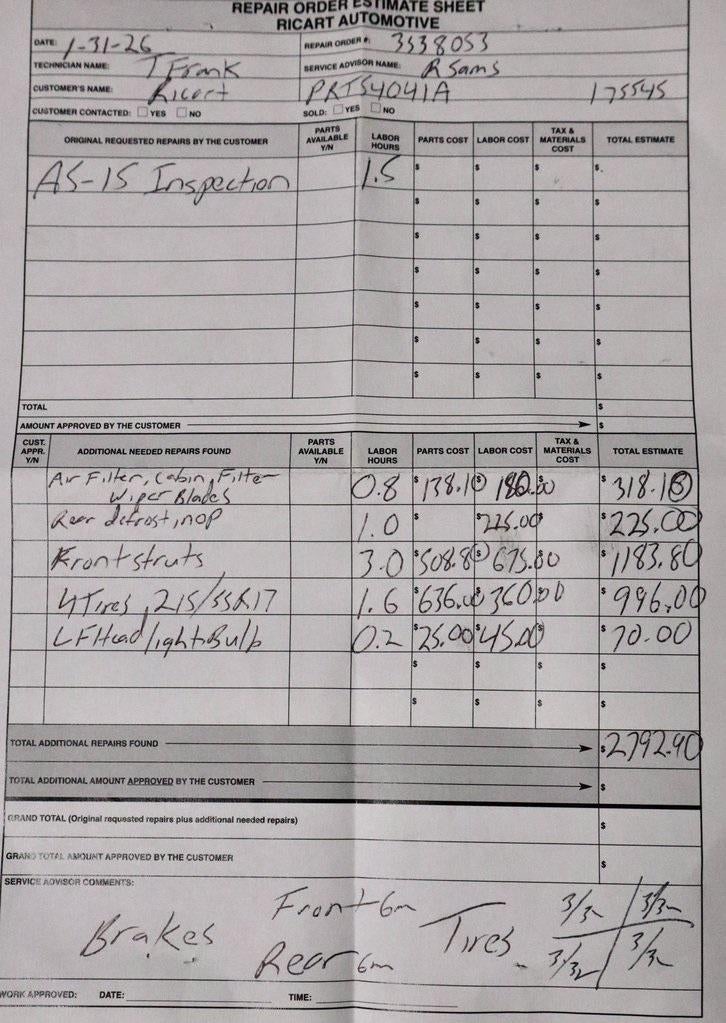 REPAIR ORDER ESTIMATE SHEET
RICART AUTOMOTIVE
DATE: 1-31-26 REPAIR ORDER #: 3538053
TECHNICIAN NAME: T Frank SERVICE ADVISOR NAME: R Sams
CUSTOMER'S NAME: Ricart PRTS4041A 175545
CUSTOMER CONTACTED: YES NO SOLD: YES NO
ORIGINAL REQUESTED REPAIRS BY THE CUSTOMER PARTS AVAILABLE Y/N LABOR HOURS PARTS COST LABOR COST TAX & MATERIALS COST TOTAL ESTIMATE
AS-IS Inspection 1.5 $ $ $ $
$ $ $ $
$ $ $ $
$ $ $ $
$ $ $ $
$ $ $ $
$ $ $ $
TOTAL $
AMOUNT APPROVED BY THE CUSTOMER $
CUST. APPR. Y/N ADDITIONAL NEEDED REPAIRS FOUND PARTS AVAILABLE Y/N LABOR HOURS PARTS COST LABOR COST TAX & MATERIALS COST TOTAL ESTIMATE
Air Filter, Cabin, Filter
Wiper Blades 0.8 $138.10 $180.00 $ $318.10
Rear defrost, nop 1.0 $ $225.00 $ $225.00
Front struts 3.0 $508.80 $675.00 $ $1183.80
4 Tires, 215/55R17 1.6 $636.00 $360.00 $ $996.00
LF Headlight Bulb 0.2 $25.00 $45.00 $ $70.00
$ $ $ $
$ $ $ $
TOTAL ADDITIONAL REPAIRS FOUND $2792.90
TOTAL ADDITIONAL AMOUNT APPROVED BY THE CUSTOMER $
GRAND TOTAL (Original requested repairs plus additional needed repairs) $
GRAND TOTAL AMOUNT APPROVED BY THE CUSTOMER $
SERVICE ADVISOR COMMENTS:
Brakes Front 6m Tires 3/32 3/32
Rear 6m 3/32 3/32
WORK APPROVED: DATE: TIME: